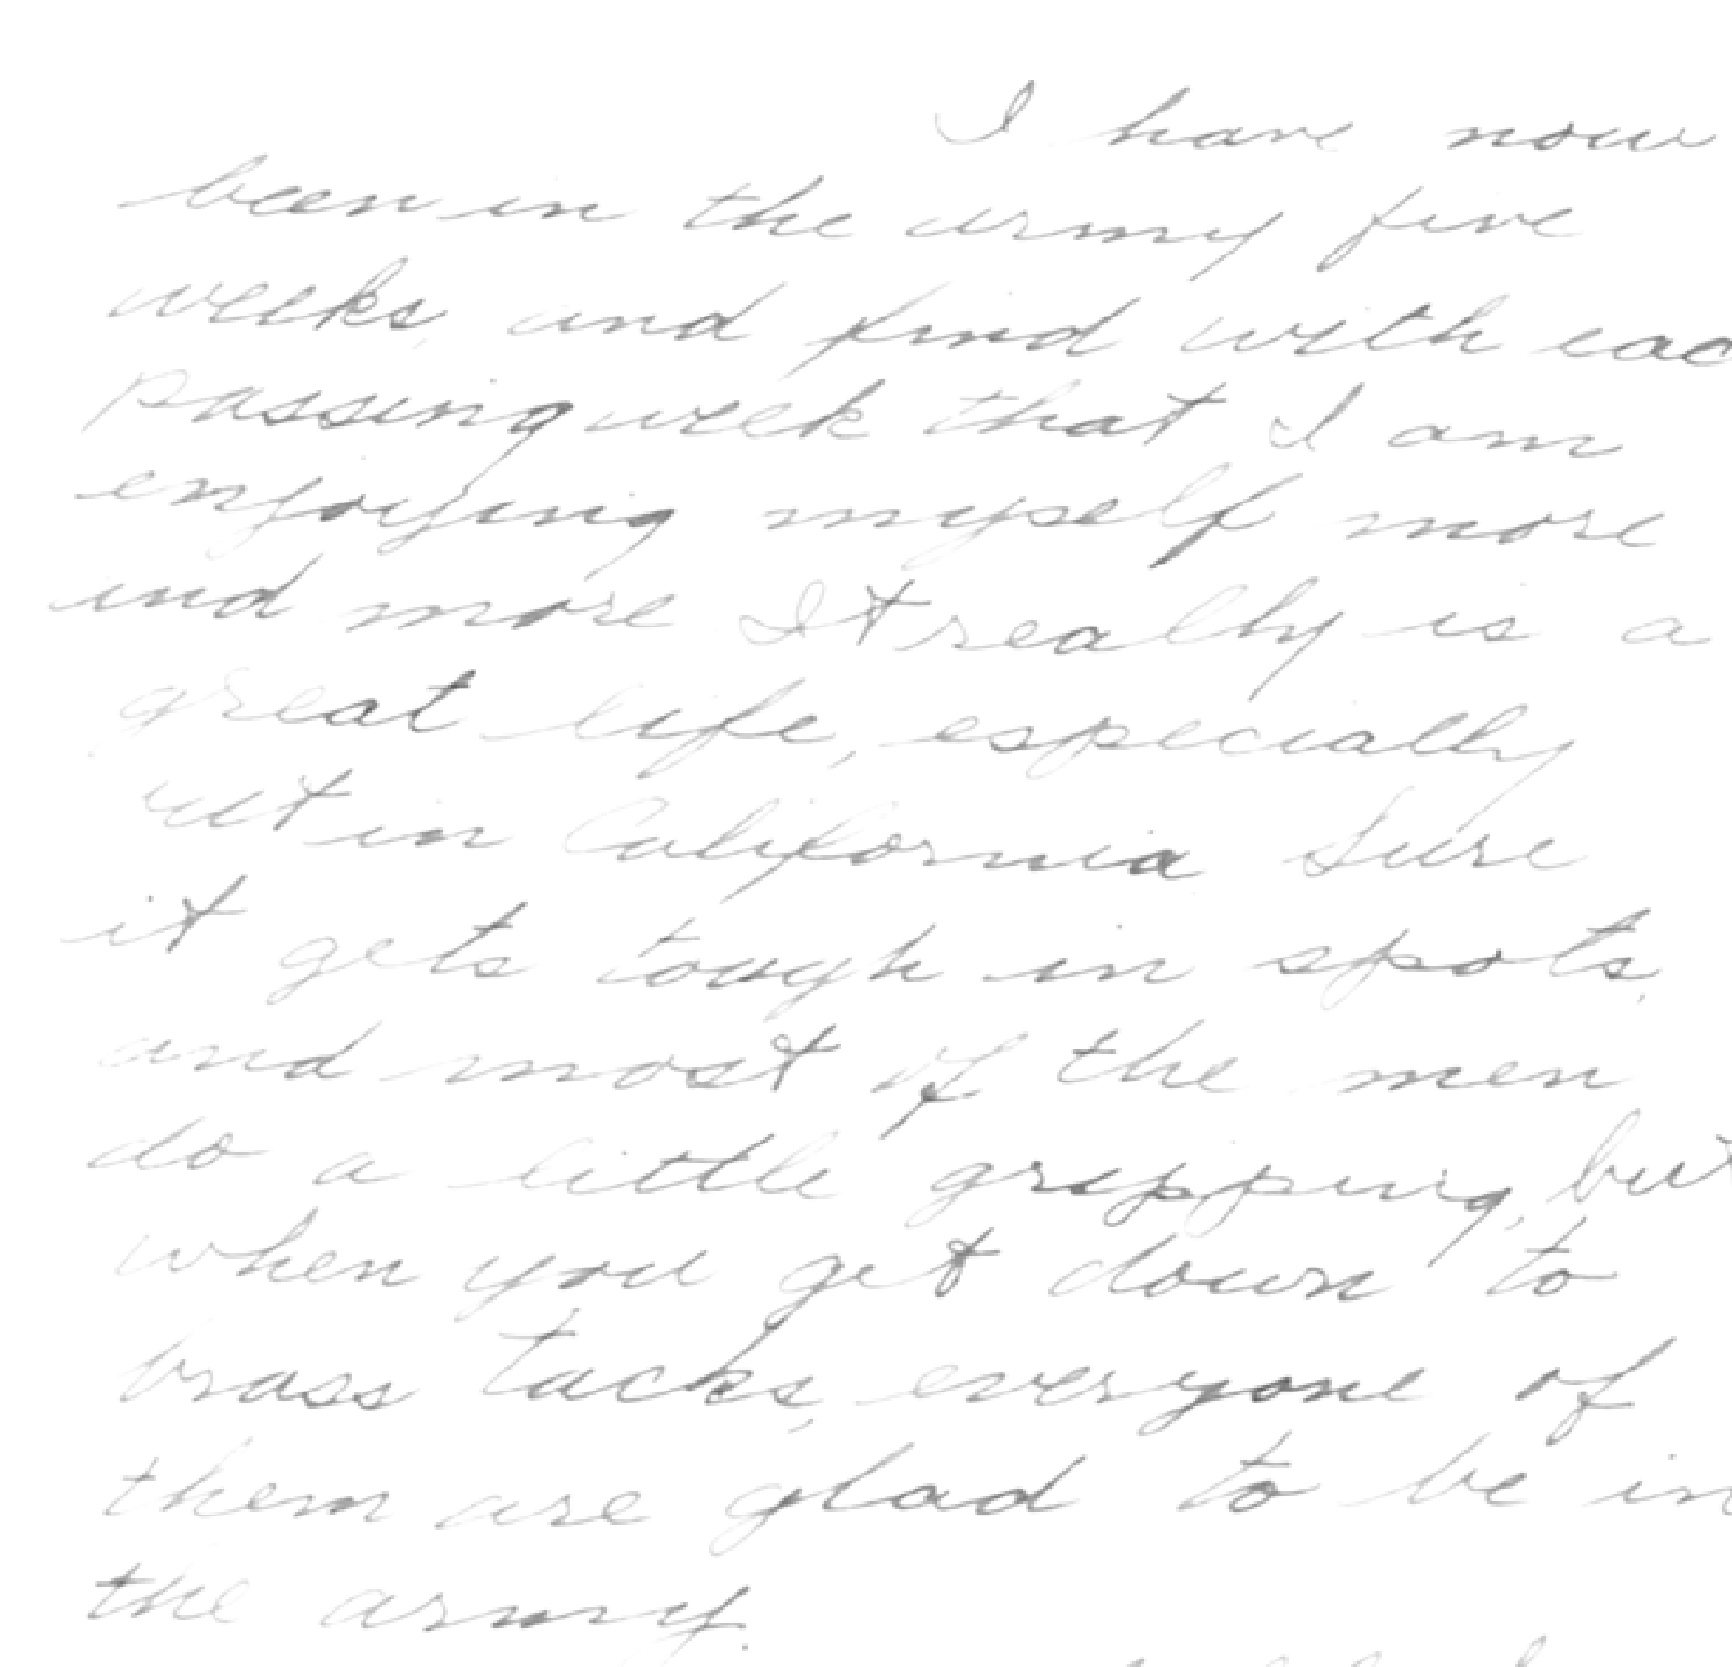 I have now
been in the army five
weeks, and find with eac
passing week that I am
enjoying myself more
and more It really is a
great life, especially
out in California Sure
it gets tough in spots,
and most of the men
do a little gripping, but
when you get down to
brass tacks, everyone of
them are glad to be in
the army.